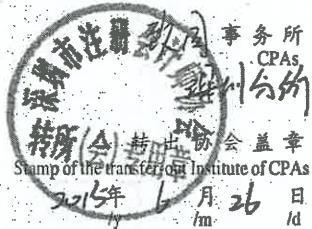 事务所
CPAs
深圳市注册会计师协会
转所专用章
转出协会盖章
Stamp of the transfer-out Institute of CPAs
2015年 6月 26日
/y /m /d